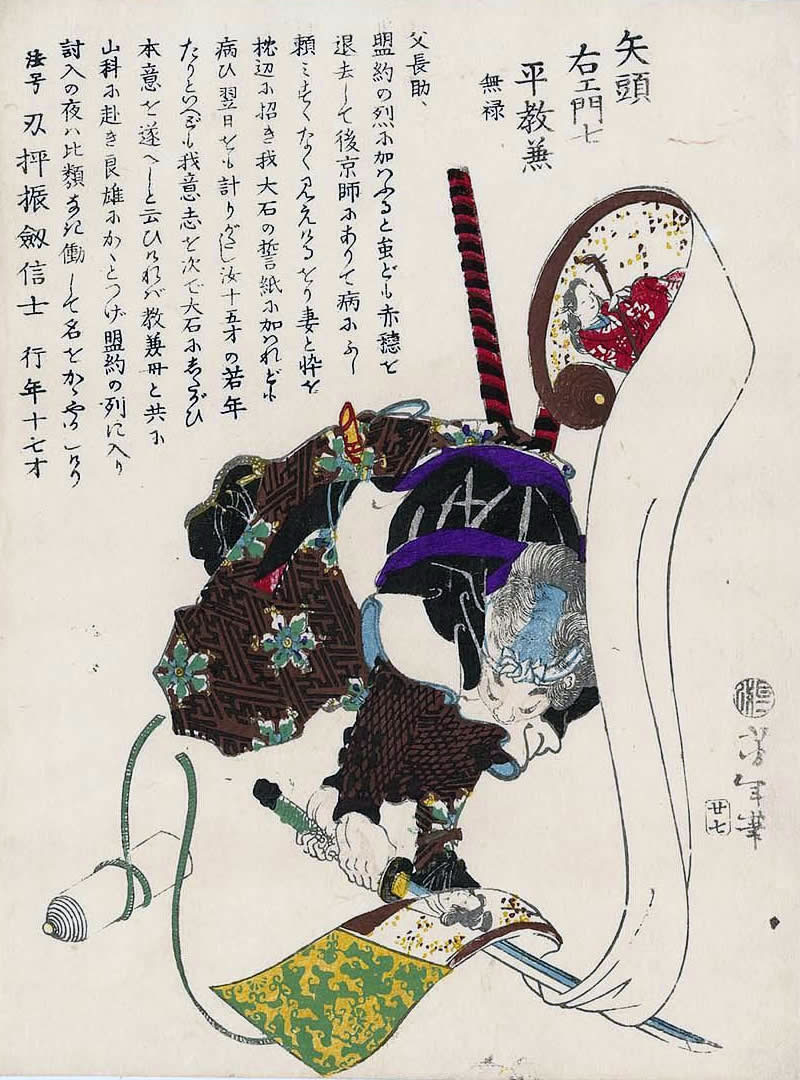 矢頭
右エ門七
平教兼
無禄
父長助、
盟約の烈に加はふると虽ども赤穂を
退去して後京師にありて病にふし
頼ミすくなく見えけるをり妻と忰を
枕辺に招き我大石の誓紙に加はれども
病ひ翌日をも計りがたし汝十五才の若年
たりといへども我意志を次で大石にしたがひ
本意を遂へしと云ひければ教兼母と共に
山科に赴き良雄にかくとつげ盟約の列に入り
討入の夜ハ比類なき働して名をかゞやかしけり
法号 刃抨振劔信士 行年十七才
芳年筆
廿七